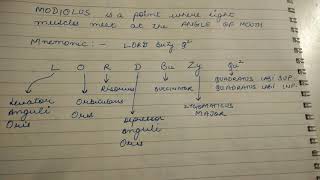 MODIOLUS is a point where eight
muscles meet at the ANGLE OF MOUTH
Mnemonic :- LORD BuZy q²
L O R D Bu Zy qu²
Levator Anguli Oris
Orbicularis Oris
Risorius
Depressor Anguli Oris
BUCCINATOR
ZYGOMATICUS MAJOR
QUADRATUS LABI SUP.
QUADRATUS LABI INF.